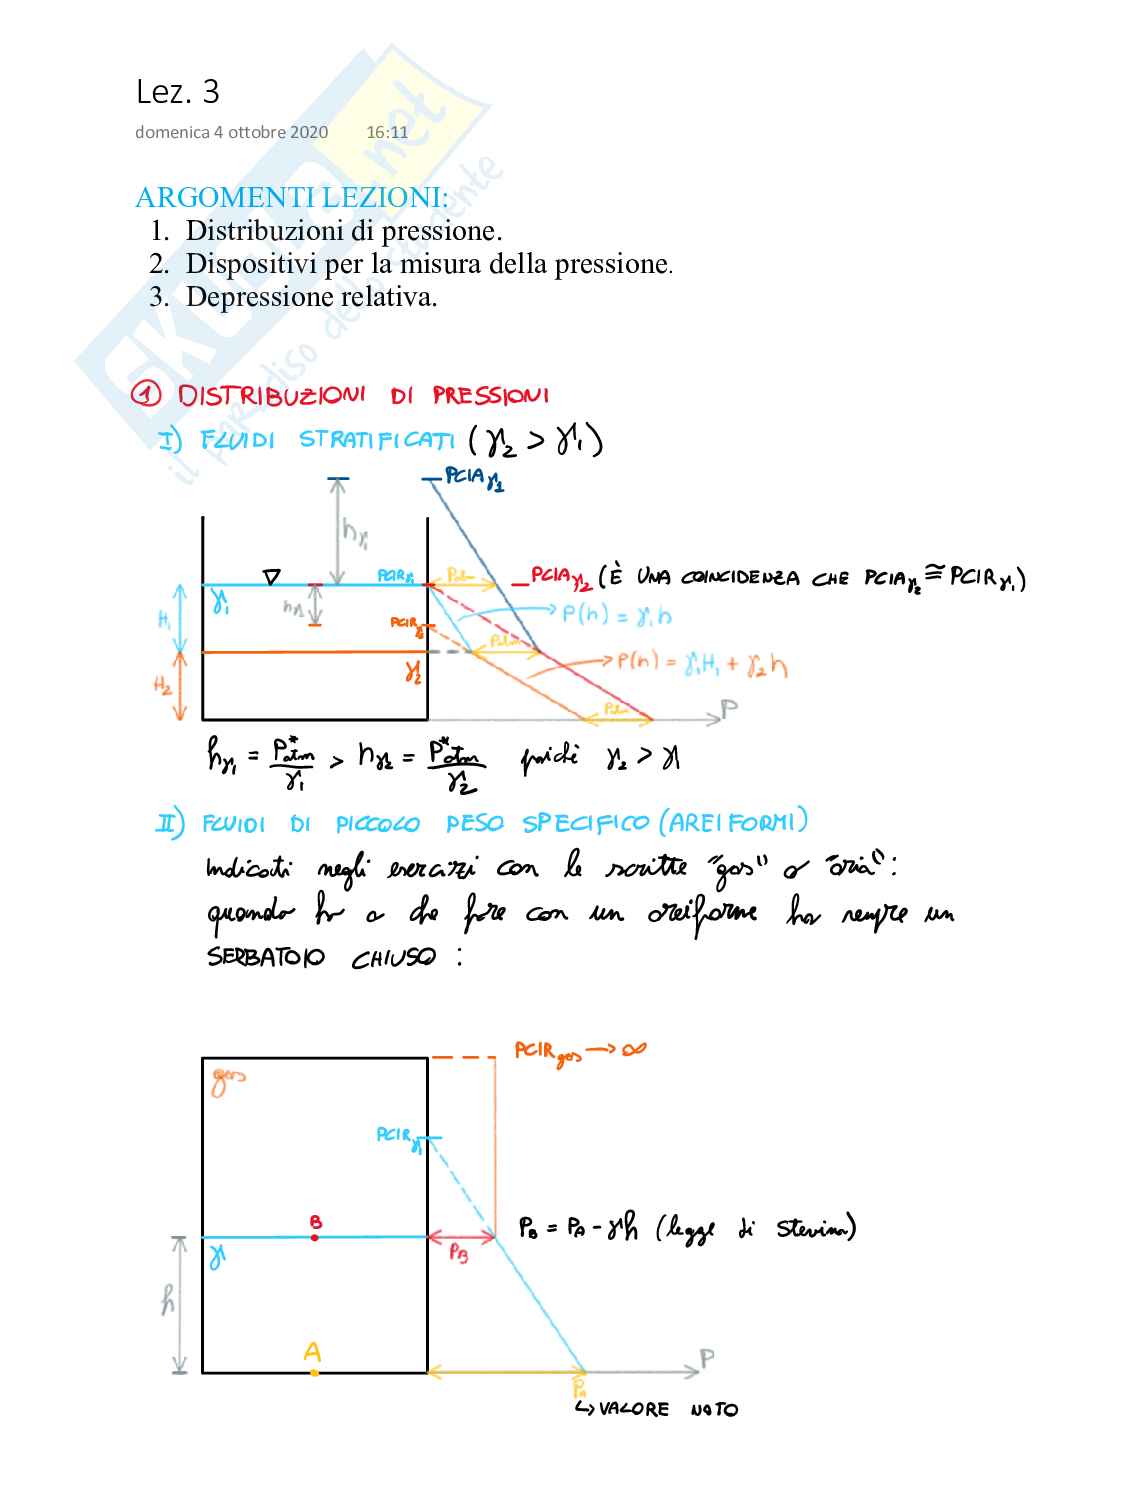 Lez. 3
domenica 4 ottobre 2020 16:11
ARGOMENTI LEZIONI:
1. Distribuzioni di pressione.
2. Dispositivi per la misura della pressione.
3. Depressione relativa.
SKUOLA.net
il paradiso dello studente
① DISTRIBUZIONI DI PRESSIONI
I) FLUIDI STRATIFICATI (γ₂ > γ₁)
PCIA γ₁
hγ₁
PCIR γ₁
Patm
PCIA γ₂ (È UNA COINCIDENZA CHE PCIA γ₂ ≅ PCIR γ₁)
γ₁
H₁
hγ₂
P(h) = γ₁h
PCIR γ₂
Patm
P(h) = γ₁H₁ + γ₂h
γ₂
H₂
P
hγ₁ = P*atm/γ₁ > hγ₂ = P*atm/γ₂ poichè γ₂ > γ₁
II) FLUIDI DI PICCOLO PESO SPECIFICO (AREIFORMI)
Indicati negli esercizi con le scritte "gas" o "aria":
quando ho a che fare con un areiforme ho sempre un
SERBATOIO CHIUSO :
PCIR gas → ∞
gas
PCIR γ₁
B
PB = PA - γh (legge di Stevino)
γ₁
PB
h
A
P
PA
↳ VALORE NOTO